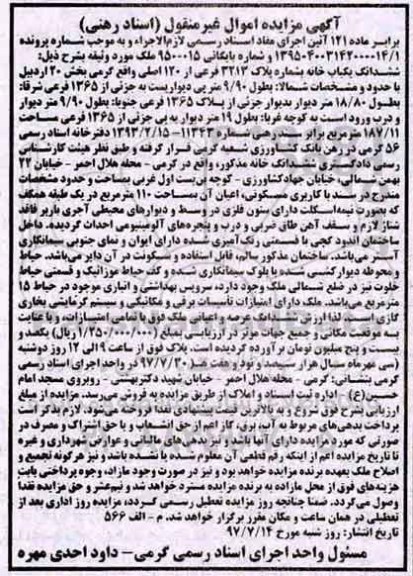 آگهی مزایده اموال غیرمنقول (اسناد رهنی)
برابر ماده ۱۲۱ آئین اجرای مفاد اسناد رسمی لازم‌الاجراء و به موجب شماره پرونده
۱۳۹۵۰۴۰۰۳۱۴۲۰۰۰۰۱۴/۱ و شماره بایگانی ۹۵۰۰۰۱۵ ملک مورد وثیقه بشرح ذیل:
ششدانگ یکباب خانه بشماره پلاک ۳۲۱۳ فرعی از ۱۲۰ اصلی واقع گرمی بخش ۲۰ اردبیل
با حدود و مشخصات شمالا: بطول ۹/۹۰ متر پی دیواریست به جزئی از ۱۳۶۵ فرعی شرقا:
بطول ۱۸/۸۰ متر دیوار بدیوار جزئی از پلاک ۱۳۶۵ فرعی جنوبا: بطول ۹/۹۰ متر دیوار
و درب ورود است به کوچه غربا: بطول ۱۹ متر دیوار به پی جزئی از ۱۳۶۵ فرعی مساحت
۱۸۷/۱۱ مترمربع برابر سند رهنی شماره ۱۱۳۴۳- ۱۳۹۳/۲/۱۵ دفترخانه اسناد رسمی
۵۶ گرمی در رهن بانک کشاورزی شعبه گرمی قرار گرفته و طبق نظر هیئت کارشناس
رسمی دادگستری ششدانگ خانه مذکور، واقع در گرمی - محله هلال احمر - خیابان ۲۲
بهمن شمالی، خیابان جهادکشاورزی - کوچه بن‌بست اول غربی بمساحت و حدود مشخصات
مندرج در سند با کاربری مسکونی، اعیان آن بمساحت ۱۱۰ مترمربع در یک طبقه همکف
که بصورت نیمه‌اسکلت دارای ستون فلزی در وسط و دیوارهای محیطی آجری باربر فاقد
شناژ لازم و سقف آهن طاق ضربی و درب و پنجره‌های آلومینیومی احداث گردیده. داخل
ساختمان اندود گچی با قسمتی رنگ‌آمیزی شده دارای ایوان و نمای جنوبی سیمانکاری
آستر می‌باشد. ساختمان مذکور سالم، قابل استفاده و سکونت در آن دایر می‌باشد. حیاط
و محوطه دیوارکشی شده با بلوک سیمانکاری شده و کف حیاط موزائیک و قسمتی حیاط
خلوت نیز در ضلع شمالی ملک وجود دارد، سرویس بهداشتی و انباری موجود در حیاط ۱۵
مترمربع می‌باشد. ملک دارای امتیازات تأسیسات برقی و مکانیکی و سیستم گرمایشی بخاری
گازی است. لذا ارزش ششدانگ عرصه و اعیانی ملک فوق با تمامی امتیازات، و با عنایت
به موقعیت مکانی و جمیع جهات موثر در ارزیابی بمبلغ (۱/۲۵۰/۰۰۰/۰۰۰) ریال) یکصد و
بیست و پنج میلیون تومان برآورده گردیده است. پلاک فوق از ساعت ۹ الی ۱۲ روز دوشنبه
(سی مهرماه سال هزار سیصد و نود و هفت شمسی) ۹۷/۷/۳۰ در واحد اجرای اسناد رسمی
گرمی بنشانی: گرمی - محله هلال احمر - خیابان شهید دکتر بهشتی - روبروی مسجد امام
حسین(ع)- اداره ثبت اسناد و املاک از طریق مزایده به فروش می‌رسد. مزایده از مبلغ
ارزیابی بشرح فوق شروع و به بالاترین قیمت پیشنهادی نقدا فروخته می‌شود. لازم بذکر است
پرداخت بدهی‌های مربوط به آب، برق، گاز اعم از حق انشعاب و یا حق اشتراک و مصرف در
صورتی که مورد مزایده دارای آنها باشد و نیز بدهی‌های مالیاتی و عوارض شهرداری و غیره
تا تاریخ مزایده اعم از اینکه رقم قطعی آن معلوم شده یا نشده باشد و نیز هرگونه تجمیع و
اصلاح ملک بعهده برنده مزایده خواهد بود و نیز در صورت وجود مازاد، وجوه پرداختی بابت
هزینه‌های فوق از محل مازاد به برنده مزایده مسترد خواهد شد و نیم‌عشر و حق مزایده نقدا
وصول می‌گردد. ضمنا چنانچه روز مزایده تعطیل رسمی گردد، مزایده روز اداری بعد از
تعطیلی در همان ساعت و مکان مقرر برگزار خواهد شد. م - الف ۵۶۶
تاریخ انتشار: روز شنبه مورخ ۹۷/۷/۱۴
مسئول واحد اجرای اسناد رسمی گرمی - داود احدی مهره